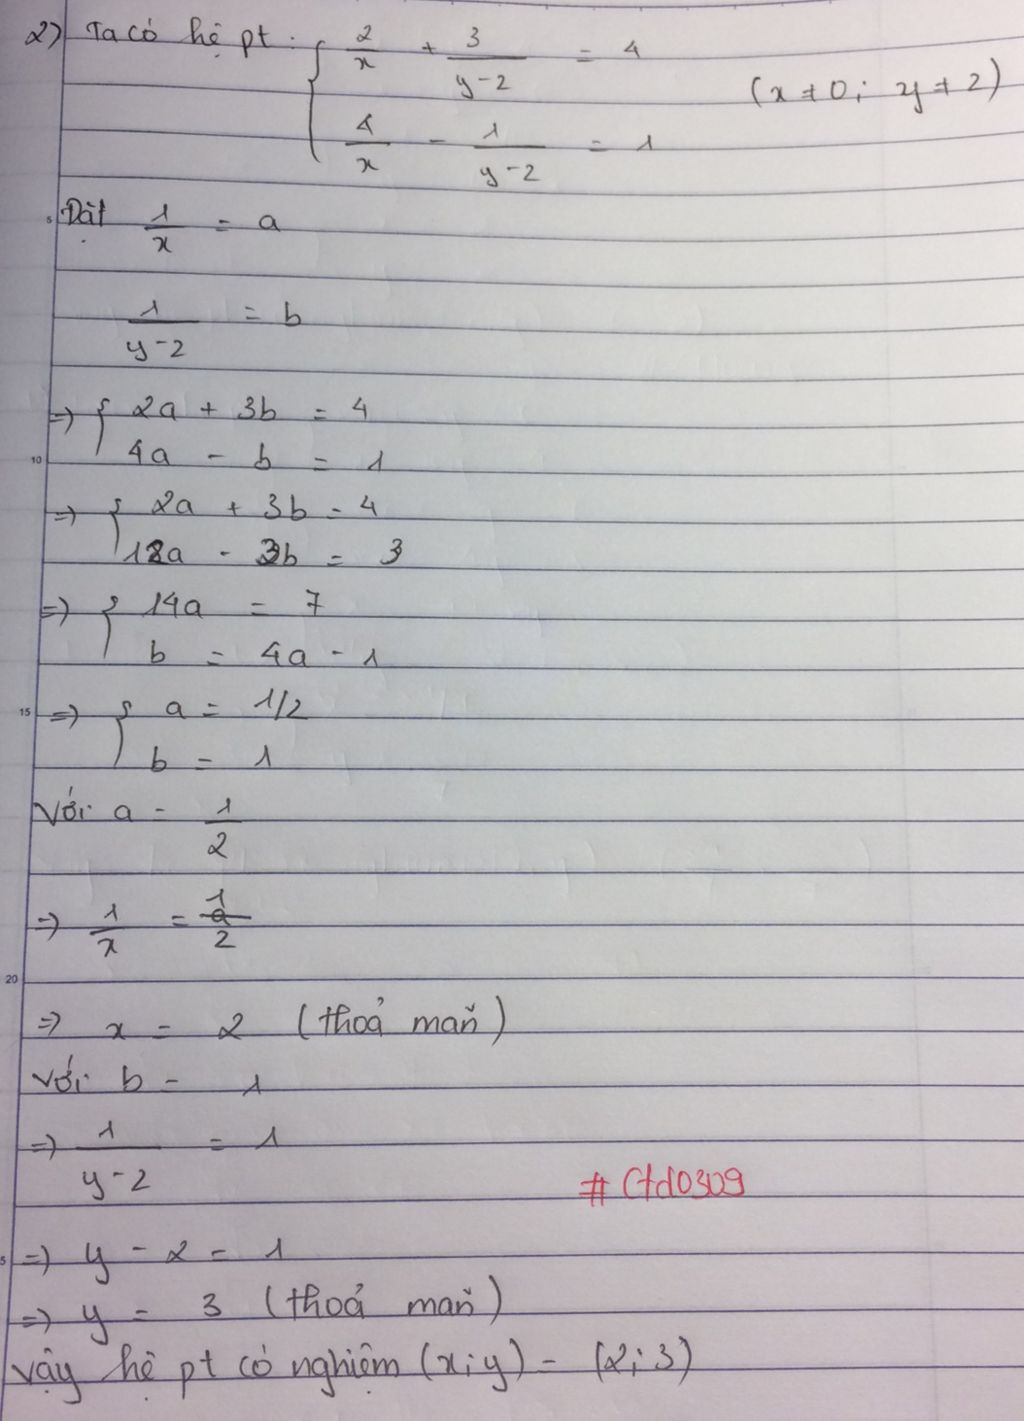 2) Ta có hệ pt: { 2/x + 3/(y-2) = 4
(x ≠ 0; y ≠ 2)
4/x - 1/(y-2) = 1
5 Đặt 1/x = a
1/(y-2) = b
=> { 2a + 3b = 4
10 4a - b = 1
=> { 2a + 3b = 4
12a - 3b = 3
=> { 14a = 7
b = 4a - 1
15 => { a = 1/2
b = 1
Với a = 1/2
=> 1/x = 1/2
20
=> x = 2 (thoả mãn)
Với b = 1
=> 1/(y-2) = 1
# Ctd0309
5 => y - 2 = 1
=> y = 3 (thoả mãn)
Vậy hệ pt có nghiệm (x;y) = (2;3)